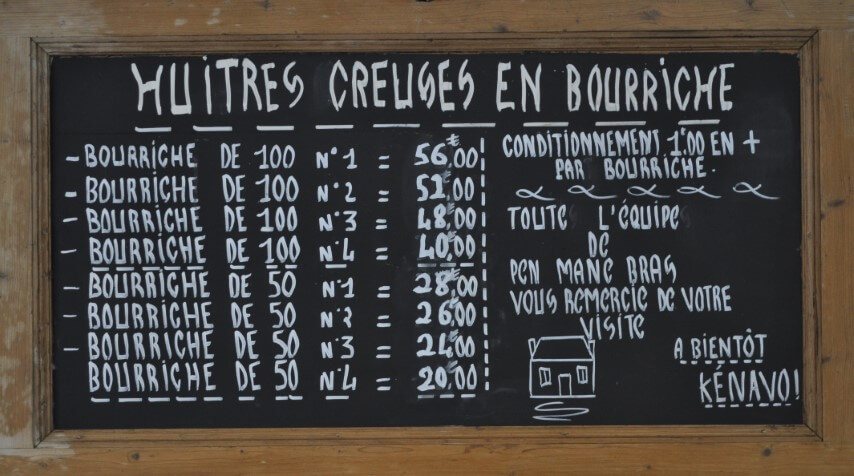 HUITRES CREUSES EN BOURRICHE
- BOURRICHE DE 100 N°1 = 56,00
- BOURRICHE DE 100 N°2 = 52,00
- BOURRICHE DE 100 N°3 = 48,00
BOURRICHE DE 100 N°4 = 40,00
- BOURRICHE DE 50 N°1 = 28,00
- BOURRICHE DE 50 N°2 = 26,00
- BOURRICHE DE 50 N°3 = 24,00
BOURRICHE DE 50 N°4 = 20,00
CONDITIONNEMENT 1€00 EN +
PAR BOURRICHE.
TOUTE L'ÉQUIPE
DE
PEN MANE BRAS
VOUS REMERCIE DE VOTRE
VISITE
A BIENTÔT
KÉNAVO!